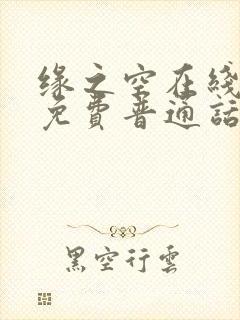 缘之空在线
免費普通話
黑空行雲